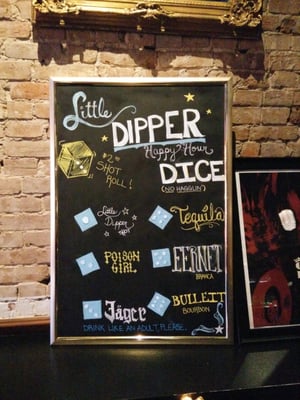 Little
DIPPER
Happy Hour
DICE
(NO HAGGLIN')
$2
SHOT
ROLL!
Little
Dipper
Tequila
POISON
GIRL
FERNET
BRANCA
Jäger
BULLEIT
BOURBON
DRINK LIKE AN ADULT, PLEASE.